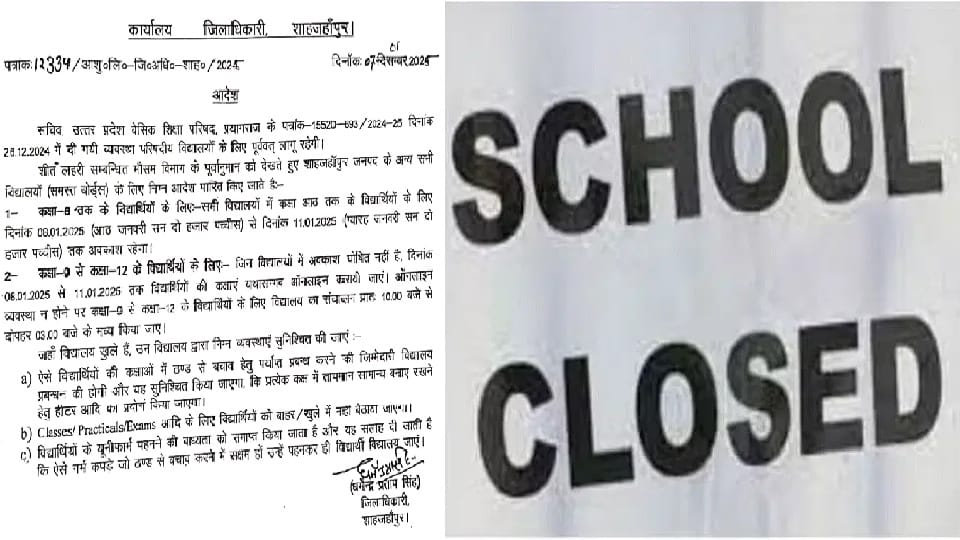 कार्यालय जिलाधिकारी, शाहजहाँपुर।
पत्रांक:12334/आशु०लि०-जि०अधि०-शाह०/2025
दिनांक: 07 2025
आदेश
सचिव उत्तर प्रदेश बेसिक शिक्षा परिषद, प्रयागराज के पत्रांक-15520-693/2024-25 दिनांक
26.12.2024 में दी गयी व्यवस्था परिषदीय विद्यालयों के लिए पूर्ववत् लागू रहेगी।
शीत लहरी सम्बन्धित मौसम विभाग के पूर्वानुमान को देखते हुए शाहजहाँपुर जनपद के अन्य सभी
विद्यालयों (समस्त बोर्ड्स) के लिए निम्न आदेश पारित किए जाते है:-
1- कक्षा-8 तक के विद्यार्थियों के लिए:-सभी विद्यालयों में कक्षा आठ तक के विद्यार्थियों के लिए
दिनांक 08.01.2025 (आठ जनवरी सन दो हजार पच्चीस) से दिनांक 11.01.2025 (ग्यारह जनवरी सन दो
हजार पच्चीस) तक अवकाश रहेगा।
2- कक्षा-9 से कक्षा-12 के विद्यार्थियों के लिए:- जिन विद्यालयों में अवकाश घोषित नहीं है, दिनांक
08.01.2025 से 11.01.2025 तक विद्यार्थियों की कक्षाएं यथासम्भव ऑनलाइन करायी जाएं। ऑनलाइन
व्यवस्था न होने पर कक्षा-9 से कक्षा-12 के विद्यार्थियों के लिए विद्यालय का संचालन प्रातः 10.00 बजे से
दोपहर 03.00 बजे के मध्य किया जाए।
जहाँ विद्यालय खुले हैं, उन विद्यालय द्वारा निम्न व्यवस्थाएं सुनिश्चित की जाएं :-
a) ऐसे विद्यार्थियों की कक्षाओं में ठण्ड से बचाव हेतु पर्याप्त प्रबन्ध करने की जिम्मेदारी विद्यालय
प्रबन्धन की होगी और यह सुनिश्चित किया जाएगा, कि प्रत्येक कक्ष में तापमान सामान्य बनाए रखने
हेतु हीटर आदि का प्रयोग किया जाएगा।
b) Classes/Practicals/Exams आदि के लिए विद्यार्थियों को बाहर/खुले में नहीं बैठाया जाएगा।
c) विद्यार्थियों के यूनीफार्म पहनने की बाध्यता को समाप्त किया जाता है और यह सलाह दी जाती है
कि ऐसे गर्म कपड़े जो ठण्ड से बचाव करने में सक्षम हों उन्हें पहनकर ही विद्यार्थी विद्यालय जाएं।
(धर्मेन्द्र प्रताप सिंह)
जिलाधिकारी,
शाहजहाँपुर।
SCHOOL
CLOSED